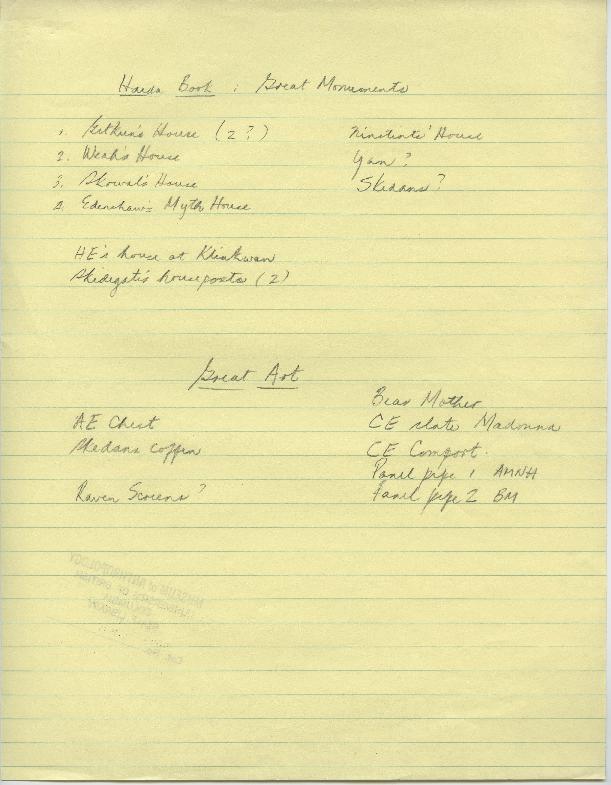 Haida Book : Great Monuments
1. Gitkun's House (2?)
2. Weah's House
3. Skowal's House
4. Edenshaw's Myth House
Ninstints' House
Yan?
Skedans?
HE's house at Klinkwan
Skidegate's houseposts (2)
Great Art
AE Chest
Skedans coffin
Raven Screens?
Bear Mother
CE slate Madonna
CE Comport.
Panel pipe 1 AMNH
Panel pipe 2 BM
MUSEUM of ANTHROPOLOGY
UNIVERSITY OF BRITISH
COLUMBIA